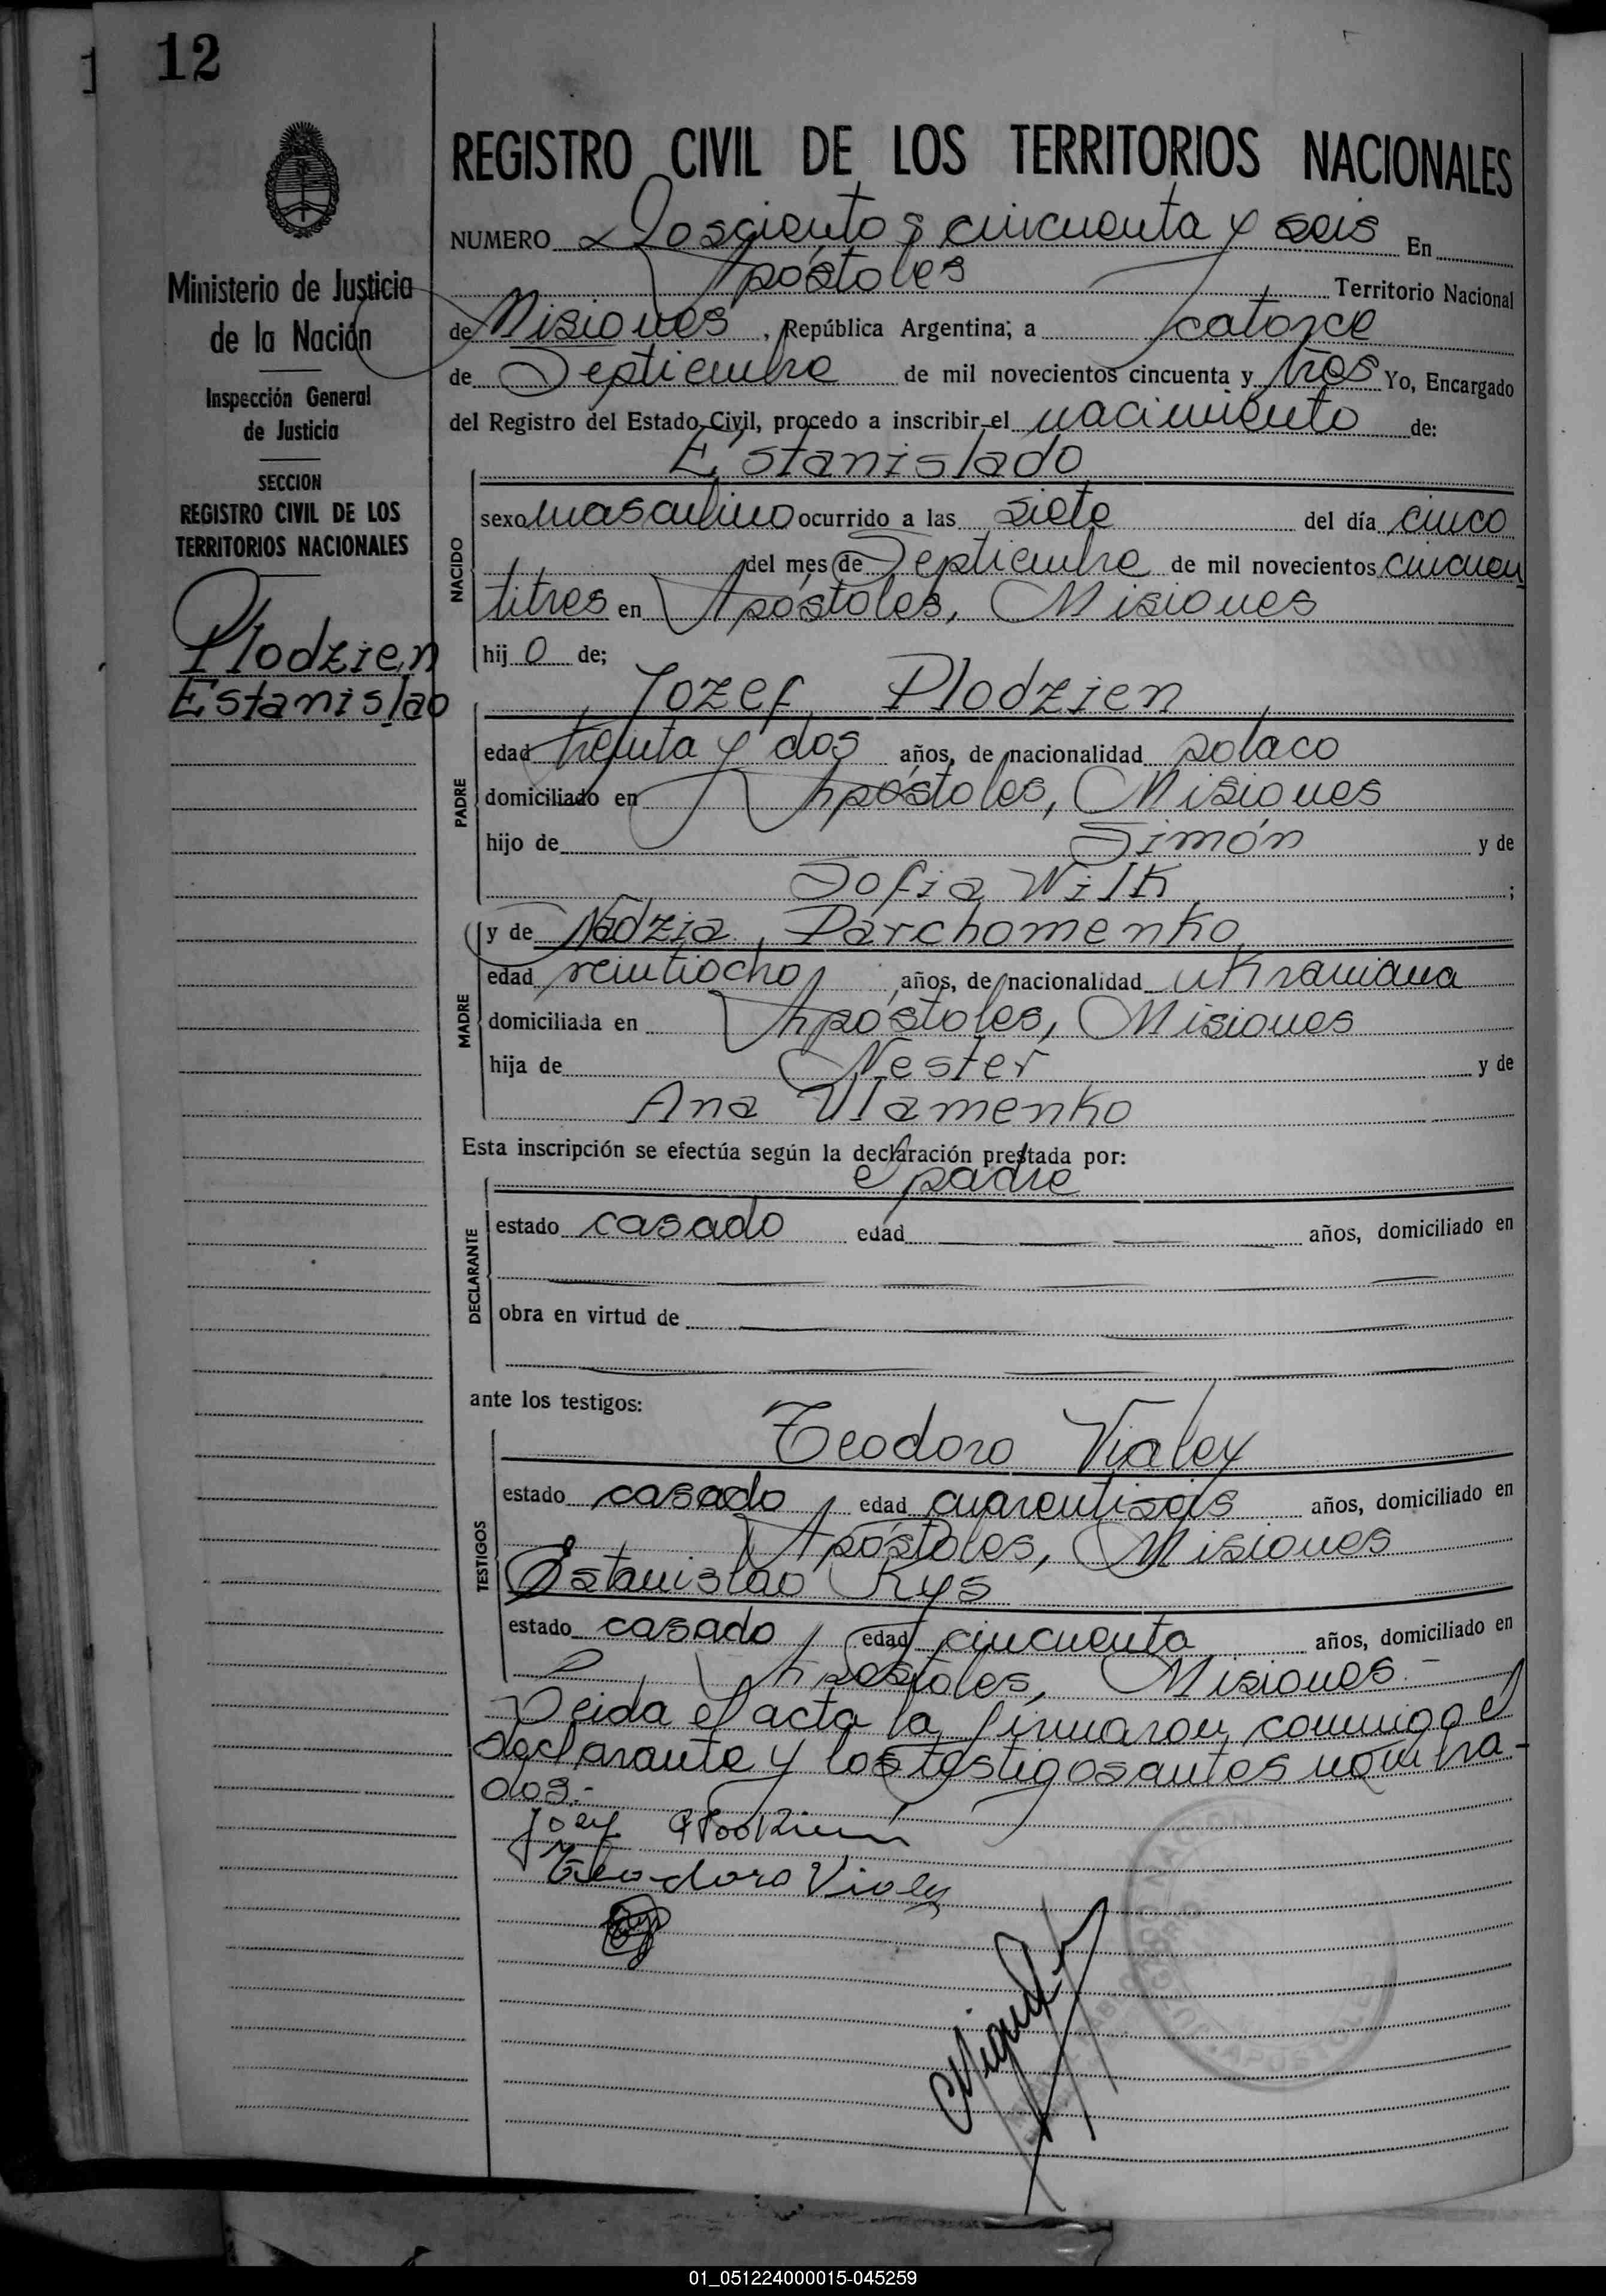 12
REGISTRO CIVIL DE LOS TERRITORIOS NACIONALES
NUMERO Doscientos cincuenta y seis En
Apóstoles Territorio Nacional
de Misiones, República Argentina; a catorce
de Septiembre de mil novecientos cincuenta y tres Yo, Encargado
del Registro del Estado Civil, procedo a inscribir el nacimiento de:
Ministerio de Justicia
de la Nación
Inspección General
de Justicia
SECCION
REGISTRO CIVIL DE LOS
TERRITORIOS NACIONALES
Plodzien
Estanislao
NACIDO
Estanislado
sexo masculino ocurrido a las siete del día cinco
del mes de Septiembre de mil novecientos cincuen
titres en Apóstoles, Misiones
hij o de;
PADRE
Jozef Plodzien
edad treinta y dos años, de nacionalidad polaco
domiciliado en Apóstoles, Misiones
hijo de Simón y de
Sofia Wilk ;
MADRE
y de Nadzia Parchomenko
edad veintiocho años, de nacionalidad ukraniana
domiciliada en Apóstoles, Misiones
hija de Nester y de
Ana Ulamenko
Esta inscripción se efectúa según la declaración prestada por:
DECLARANTE
el padre
estado casado edad años, domiciliado en
obra en virtud de
ante los testigos:
TESTIGOS
Teodoro Vialey
estado casado edad cuarentiseis años, domiciliado en
Apóstoles, Misiones
Estanislao Rys
estado casado edad cincuenta años, domiciliado en
Apóstoles, Misiones.-
Leida el acta la firmaron conmigo el
declarante y los testigos antes nombra-
dos.-
Józef Płodzień
Teodoro Vialey
APOSTOLES
01_051224000015-045259